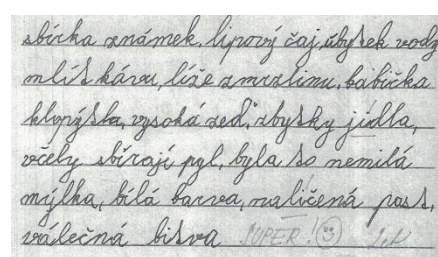 sbírka známek, lipový čaj, úbytek vody
mlít kávu, líže zmrzlinu, babička
klopýtla, vysoká zeď, zbytky jídla,
včely sbírají pyl, byla to nemilá
mýlka, bílá barva, nalíčená past,
válečná bitva SUPER!